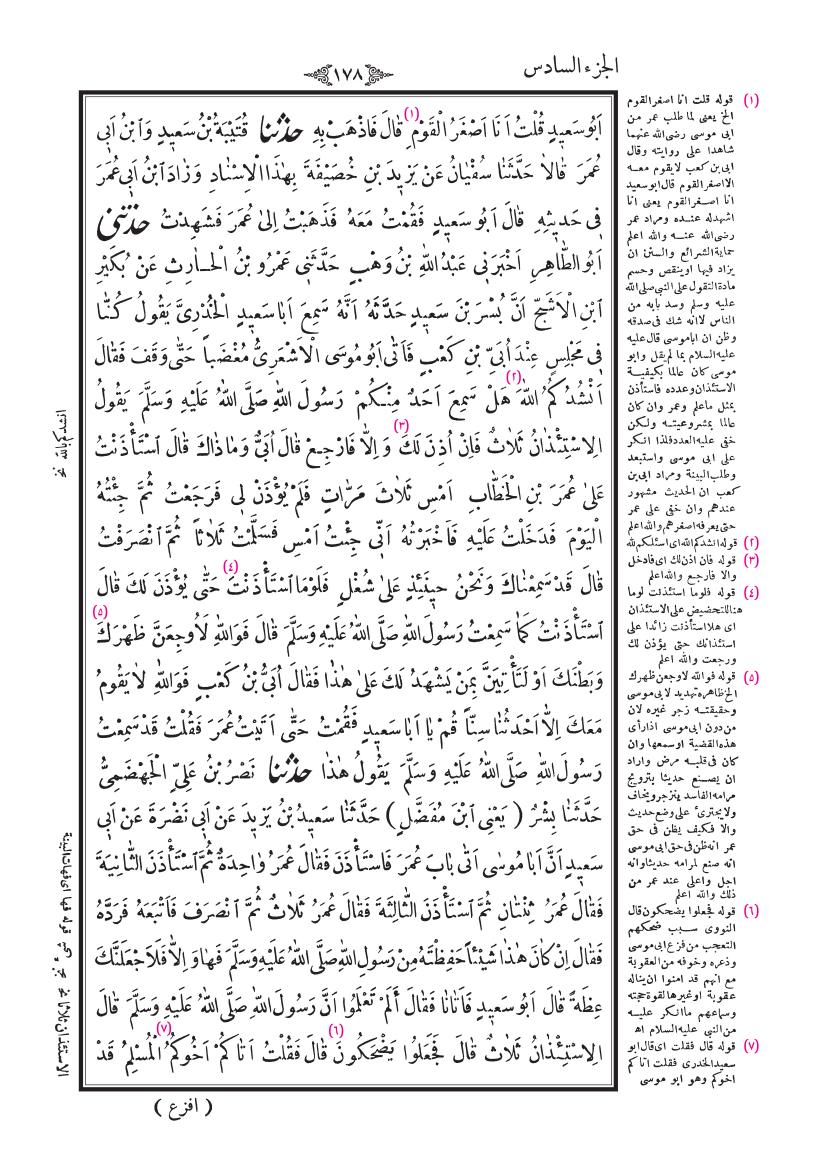 الجزء السادس
١٧٨
اَبُو سَعِيدٍ قُلْتُ اَنَا اَصْغَرُ الْقَوْمِ (١) قَالَ فَاذْهَبْ بِهِ حَدَّثَنَا قُتَيْبَةُ بْنُ سَعِيدٍ وَابْنُ اَبِى
عُمَرَ قَالَا حَدَّثَنَا سُفْيَانُ عَنْ يَزِيدَ بْنِ خُصَيْفَةَ بِهٰذَا الْاِسْنَادِ وَزَادَ ابْنُ اَبِى عُمَرَ
فِى حَدِيثِهِ قَالَ اَبُو سَعِيدٍ فَقُمْتُ مَعَهُ فَذَهَبْتُ اِلىٰ عُمَرَ فَشَهِدْتُ حَدَّثَنِى
اَبُو الطَّاهِرِ اَخْبَرَنِى عَبْدُ اللهِ بْنُ وَهْبٍ حَدَّثَنِى عَمْرُو بْنُ الْحَارِثِ عَنْ بُكَيْرِ
ابْنِ الْاَشَجِّ اَنَّ بُسْرَ بْنَ سَعِيدٍ حَدَّثَهُ اَنَّهُ سَمِعَ اَبَا سَعِيدٍ الْخُدْرِىَّ يَقُولُ كُنَّا
فِى مَجْلِسٍ عِنْدَ اُبَىِّ بْنِ كَعْبٍ فَاَتٰى اَبُو مُوسَى الْاَشْعَرِىُّ مُغْضَباً حَتّٰى وَقَفَ فَقَالَ
اَنْشُدُكُمُ اللهَ (٢) هَلْ سَمِعَ اَحَدٌ مِنْكُمْ رَسُولَ اللهِ صَلَّى اللهُ عَلَيْهِ وَسَلَّمَ يَقُولُ
الْاِسْتِئْذَانُ ثَلَاثٌ فَاِنْ اُذِنَ لَكَ (٣) وَاِلَّا فَارْجِعْ قَالَ اُبَىٌّ وَمَا ذَاكَ قَالَ اسْتَأْذَنْتُ
عَلىٰ عُمَرَ بْنِ الْخَطَّابِ اَمْسِ ثَلَاثَ مَرَّاتٍ فَلَمْ يُؤْذَنْ لِى فَرَجَعْتُ ثُمَّ جِئْتُهُ
الْيَوْمَ فَدَخَلْتُ عَلَيْهِ فَاَخْبَرْتُهُ اَنِّى جِئْتُ اَمْسِ فَسَلَّمْتُ ثَلَاثاً ثُمَّ انْصَرَفْتُ
قَالَ قَدْ سَمِعْنَاكَ وَنَحْنُ حِينَئِذٍ عَلىٰ شُغْلٍ فَلَوْمَا اسْتَأْذَنْتَ (٤) حَتّٰى يُؤْذَنَ لَكَ قَالَ
اسْتَأْذَنْتُ كَمَا سَمِعْتُ رَسُولَ اللهِ صَلَّى اللهُ عَلَيْهِ وَسَلَّمَ قَالَ فَوَاللهِ لَاُوجِعَنَّ ظَهْرَكَ (٥)
وَبَطْنَكَ اَوْ لَتَأْتِيَنَّ بِمَنْ يَشْهَدُ لَكَ عَلىٰ هٰذَا فَقَالَ اُبَىُّ بْنُ كَعْبٍ فَوَاللهِ لَا يَقُومُ
مَعَكَ اِلَّا اَحْدَثُنَا سِنّاً قُمْ يَا اَبَا سَعِيدٍ فَقُمْتُ حَتّٰى اَتَيْتُ عُمَرَ فَقُلْتُ قَدْ سَمِعْتُ
رَسُولَ اللهِ صَلَّى اللهُ عَلَيْهِ وَسَلَّمَ يَقُولُ هٰذَا حَدَّثَنَا نَصْرُ بْنُ عَلِىٍّ الْجَهْضَمِىُّ
حَدَّثَنَا بِشْرٌ (يَعْنِى ابْنَ مُفَضَّلٍ) حَدَّثَنَا سَعِيدُ بْنُ يَزِيدَ عَنْ اَبِى نَضْرَةَ عَنْ اَبِى
سَعِيدٍ اَنَّ اَبَا مُوسٰى اَتٰى بَابَ عُمَرَ فَاسْتَأْذَنَ فَقَالَ عُمَرُ وَاحِدَةٌ ثُمَّ اسْتَأْذَنَ الثَّانِيَةَ
فَقَالَ عُمَرُ ثِنْتَانِ ثُمَّ اسْتَأْذَنَ الثَّالِثَةَ فَقَالَ عُمَرُ ثَلَاثٌ ثُمَّ انْصَرَفَ فَاَتْبَعَهُ فَرَدَّهُ
فَقَالَ اِنْ كَانَ هٰذَا شَيْئاً حَفِظْتَهُ مِنْ رَسُولِ اللهِ صَلَّى اللهُ عَلَيْهِ وَسَلَّمَ فَهَا وَاِلَّا فَلَاَجْعَلَنَّكَ
عِظَةً قَالَ اَبُو سَعِيدٍ فَاَتَانَا فَقَالَ اَلَمْ تَعْلَمُوا اَنَّ رَسُولَ اللهِ صَلَّى اللهُ عَلَيْهِ وَسَلَّمَ قَالَ
الْاِسْتِئْذَانُ ثَلَاثٌ قَالَ فَجَعَلُوا يَضْحَكُونَ (٦) قَالَ فَقُلْتُ اَتَاكُمْ اَخُوكُمُ (٧) الْمُسْلِمُ قَدْ
(افزع)
(١) قوله قلت انا اصغر القوم
الخ يعنى لما طلب عمر من
ابى موسى رضى الله عنهما
شاهدا على روايته وقال
ابى بن كعب لا يقوم معه
الا اصغر القوم قال ابو سعيد
انا اصغر القوم يعنى انا
اشهد له عنده ومراد عمر
رضى الله عنه والله اعلم
حماية الشرائع والسنن ان
يزاد فيها او ينقص وحسم
مادة التقول على النبى صلى الله
عليه وسلم وسد بابه من
الناس لا انه شك فى صدقه
وظن ان ابا موسى قال عليه
عليه السلام بما لم يقل وابو
موسى كان عالما بكيفية
الاستئذان وعدده فاستأذن
بمثل ما علم وعمر وان كان
عالما بمشروعيته ولكن
خفى عليه العدد فلذا انكر
على ابى موسى واستبعد
وطلب البينة ومراد ابى بن
كعب ان الحديث مشهور
عندهم وان خفى على عمر
حتى يعرفه اصغرهم والله اعلم
(٢) قوله انشدكم الله اى اسئلكم لله
(٣) قوله فان اذن لك اى فادخل
والا فارجع والله اعلم
(٤) قوله فلوما استئذنت لوما
هنا للتحضيض على الاستئذان
اى هلا استأذنت زائدا على
استئذانك حتى يؤذن لك
ورجعت والله اعلم
(٥) قوله فوالله لاوجعن ظهرك
الخ ظاهره تهديد لابى موسى
وحقيقته زجر غيره لان
من دون ابى موسى اذا رأى
هذه القضية او سمعها وان
كان فى قلبه مرض واراد
ان يصنع حديثا بترويج
مرامه الفاسد ينزجر ويخاف
ولا يجترئ على وضع حديث
والا فكيف يظن فى حق
عمر انه ظن فى حق ابى موسى
انه صنع لمرامه حديثا وانه
اجل واعلى عند عمر من
ذلك والله اعلم
(٦) قوله فجعلوا يضحكون قال
النووى سبب ضحكهم
التعجب من فزع ابى موسى
وذعره وخوفه من العقوبة
مع انهم قد امنوا ان يناله
عقوبة او غيرها لقوة حجته
وسماعهم ما انكر عليه
من النبى عليه السلام اه
(٧) قوله قال فقلت اى قال ابو
سعيد الخدرى فقلت اتاكم
اخوكم وهو ابو موسى
انشدكم بالله نخ
الاستئذان ثلاثا نخ
قوله فها اى فهات البينة